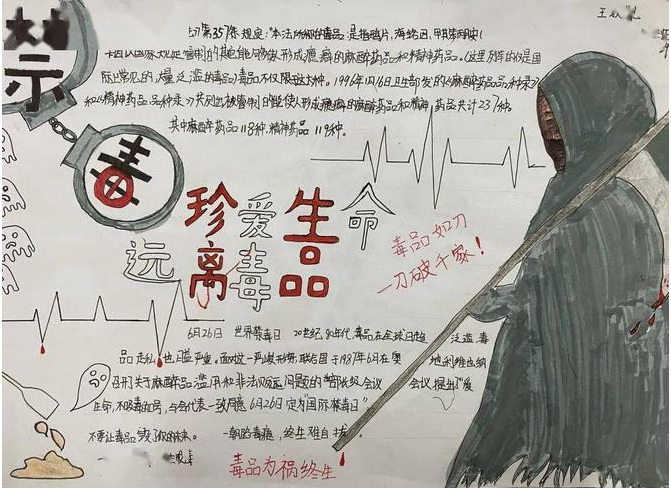 王
禁毒
第357条规定:"本法所称的毒品,是指鸦片,海络因,甲基苯丙胺(
国家规定管制的其他能够使人形成瘾癖的麻醉药品和精神药品。(这里列举的仅是国
际上常见的,大量泛滥的毒品)毒品不仅限这六种。1996年1月16日卫生部发的《麻醉药品品种录》
和《精神药品品种录》共列出被管制的能使人形成瘾癖的麻醉药品和精神药品共计237种。
其中麻醉药品118种.精神药品119种。
珍爱生命
远离毒品
毒品如刀
一刀破千家!
6月26日 世界禁毒日 20世纪80年代,毒品在全球日趋 泛滥,毒
品走私也日益严重。面对这一严峻形势,联合国于1987年6月在奥 地利维也纳
召开关于麻醉品滥用和非法贩运问题的"部长级会议 会议提出"爱
生命,不吸毒"口号,与会代表一致同意6月26日定为"国际禁毒日"
不要让毒品毁了你的未来。 一朝陷毒瘾,终生难自拔。
毒品为祸终生